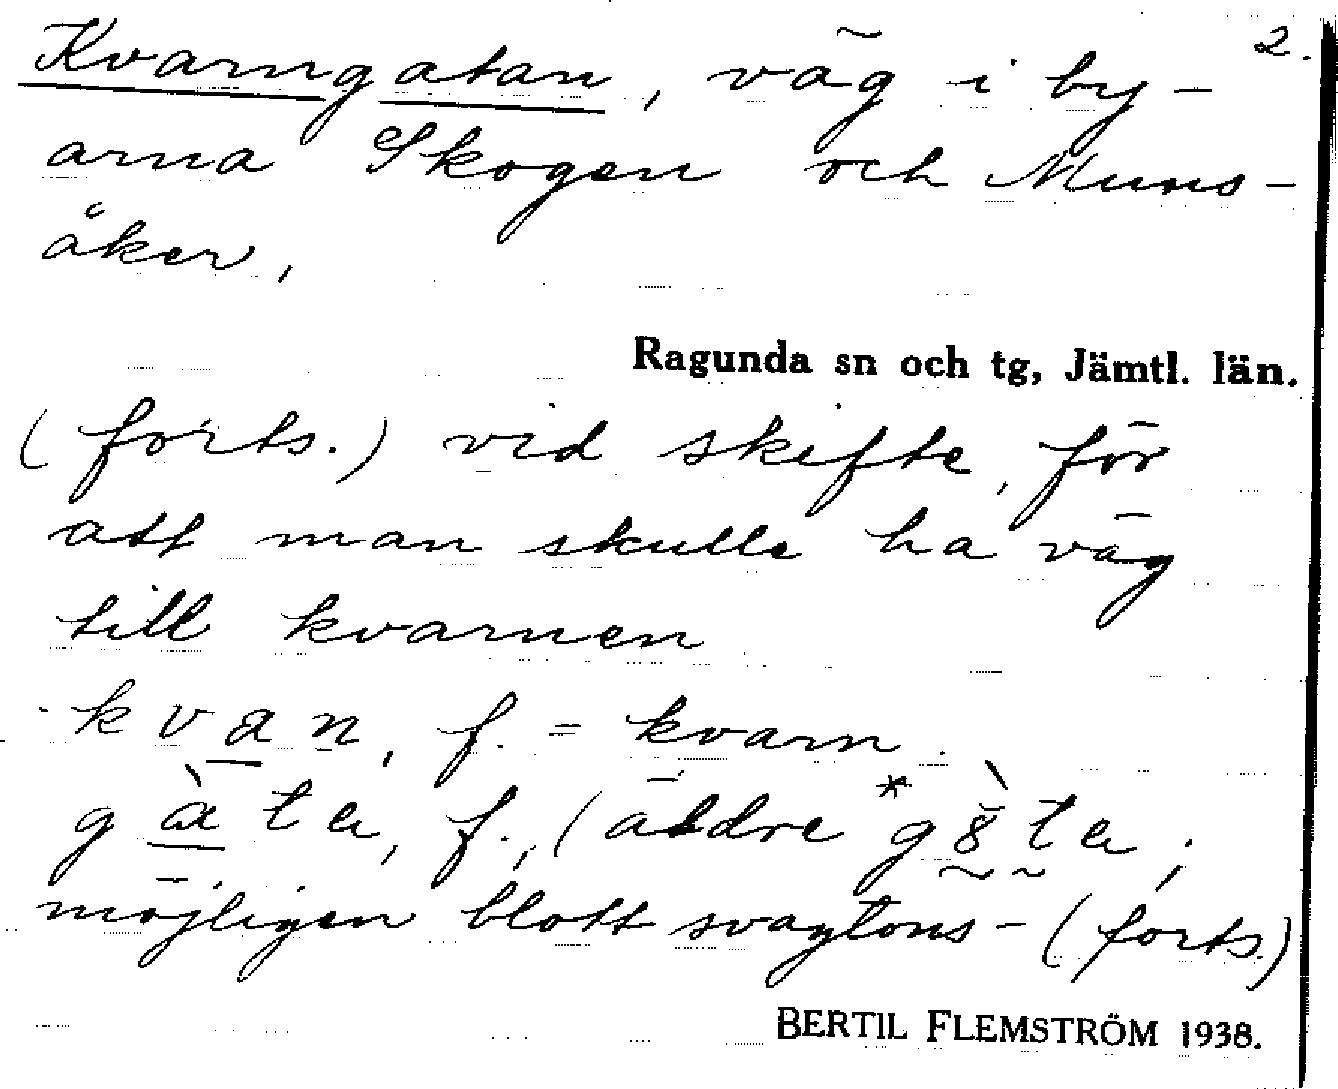 2.
Kvarngatan, väg i by-
arna Skogen och Muns-
åker,
Ragunda sn och tg, Jämtl. län.
(forts.) vid skifte, för
att man skulle ha väg
till kvarnen
kvan, f. = kvarn.
gàta, f., (äldre *
möjligen blott svagtons- (forts.)
BERTIL FLEMSTRÖM 1938.